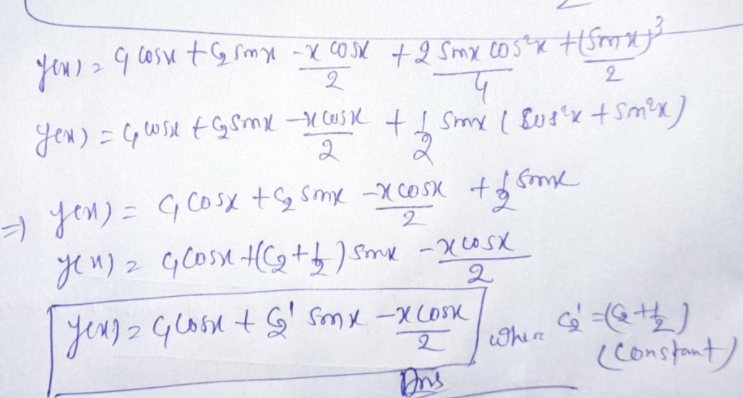 y(x) = C₁ cosx + C₂ sinx - x cosx/2 + 2 sinx cos²x/4 + (sinx)³/2
y(x) = C₁ cosx + C₂ sinx - x cosx/2 + 1/2 sinx (cos²x + sin²x)
⇒ y(x) = C₁ cosx + C₂ sinx - x cosx/2 + 1/2 sinx
y(x) = C₁ cosx + (C₂ + 1/2) sinx - x cosx/2
y(x) = C₁ cosx + C₂' sinx - x cosx/2 where C₂' = (C₂ + 1/2)
(constant)
Ans